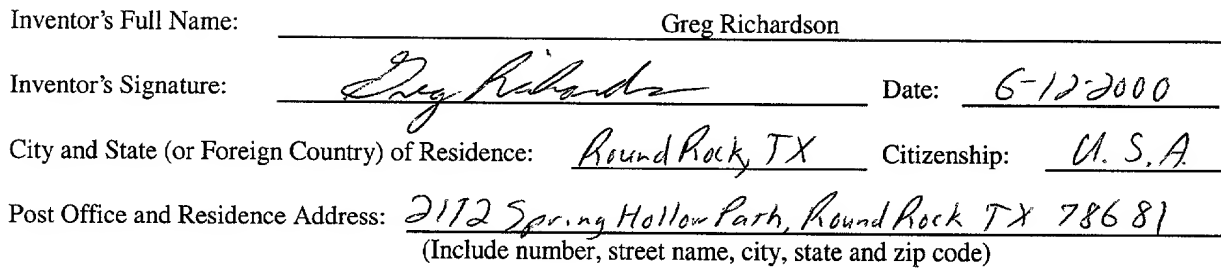 Inventor's Full Name: Greg Richardson
Inventor's Signature: Greg Richardson Date: 6-12-2000
City and State (or Foreign Country) of Residence: Round Rock, TX Citizenship: U.S.A.
Post Office and Residence Address: 2172 Spring Hollow Path, Round Rock TX 78681
(Include number, street name, city, state and zip code)